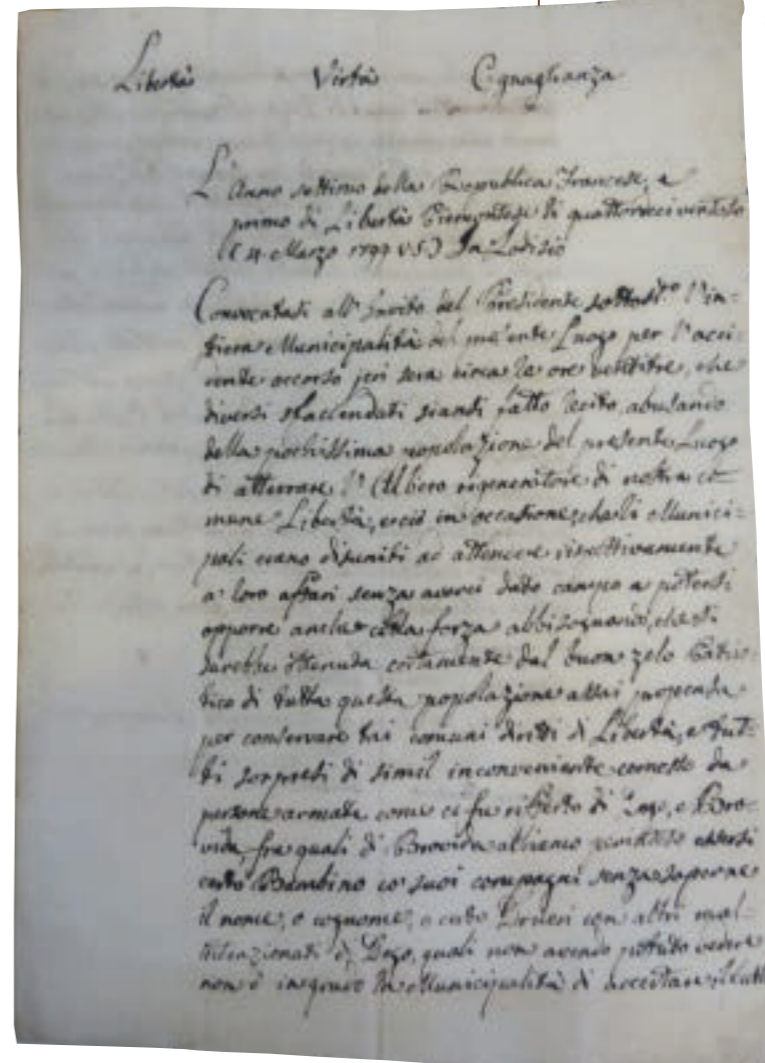 Libertà Virtù Eguaglianza
L'Anno settimo della Repubblica Francese, e
primo di Libertà Piemontese li quattordici ventoso
(4 Marzo 1799 v.s.) In Lodisio
Convocatasi all'Invito del Presidente sottos.to l'in=
tiera Municipalità del pre'ente Luogo per l'acci=
dente occorso jeri sera circa le ore ventitre, che
diversi sfaccendati siansi fatto lecito, abusando
della pochissima popolazione del presente Luogo
di atterrare l'Albero rigeneratore di nostra co=
mune Libertà, e ciò in occasione, che li Munici=
pali erano disuniti ad attendere rispettivamente
a' loro affari senza averci dato campo a potersi
opporre anche colla forza abbisognando, che si
sarebbe ottenuta certamente dal buon zelo Patrio=
tico di tutta questa popolazione assai propensa
per conservare tai comuni diritti di Libertà, e tut=
ti sorpresi di simil inconveniente comesso da
persone armate come ci fu riferto di Dego, e Bro=
vida, fra quali di Brovida abbiamo essersi
certo Bambino co' suoi compagni senza saperne
il nome, o cognome, e certo con altri mal=
intenzionati di Dego, quali non avendo potuto vedere
non è in grado la Municipalità di accertare,